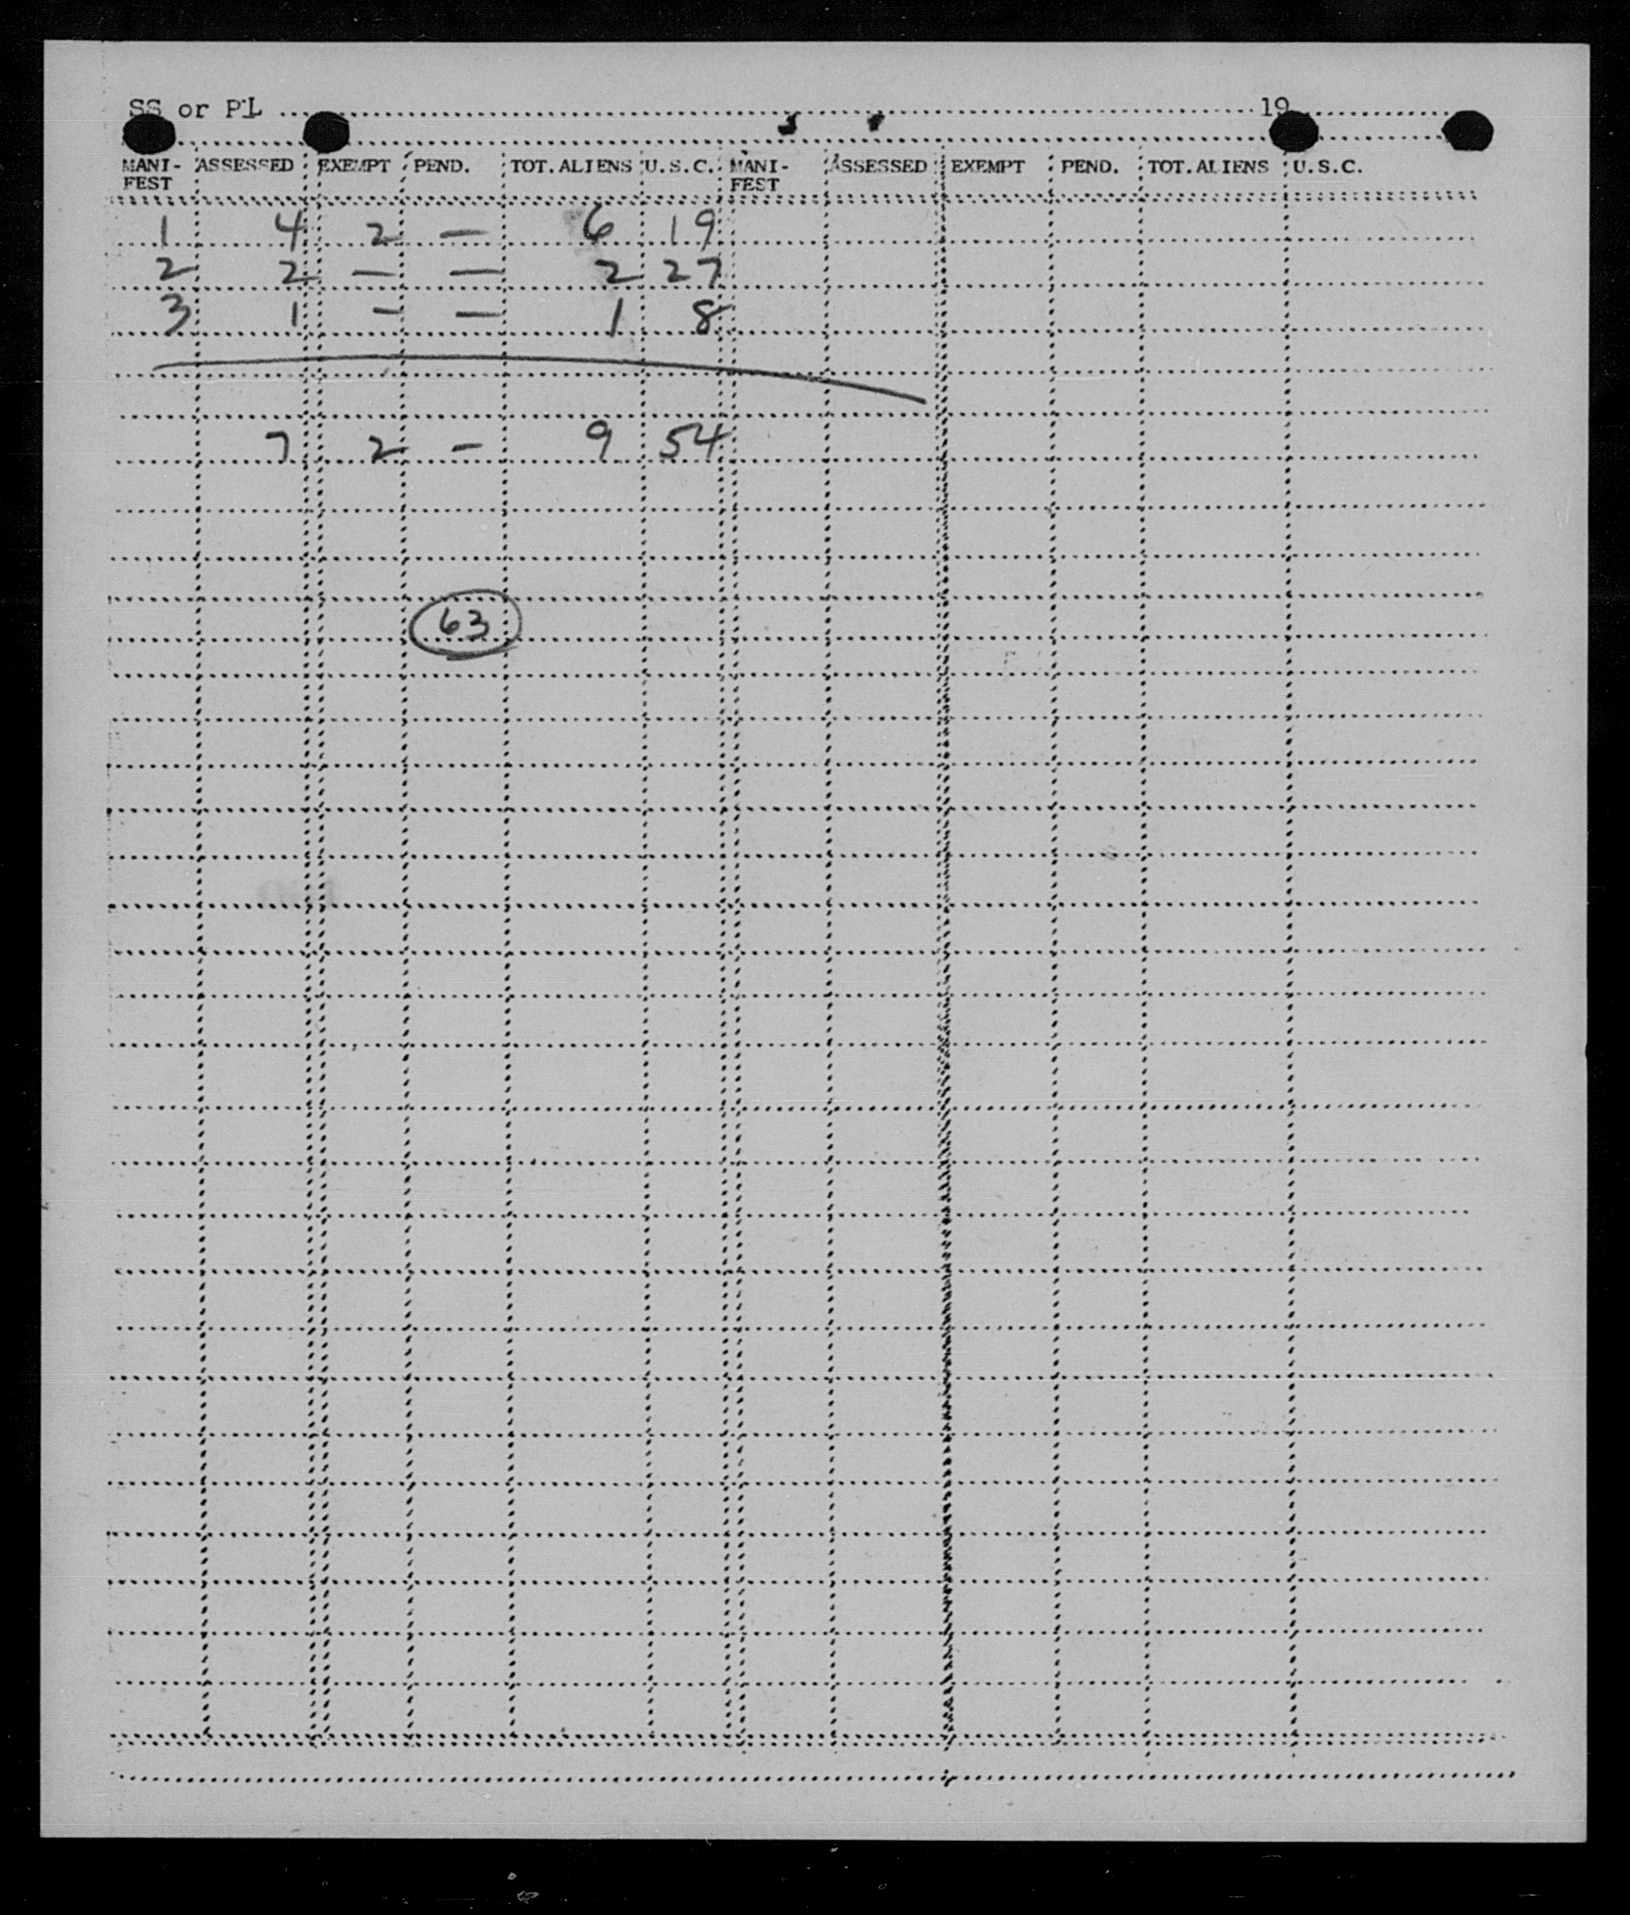 SS or PL 19
MANI- ASSESSED EXEMPT PEND. TOT. ALIENS U.S.C. MANI- ASSESSED EXEMPT PEND. TOT. ALIENS U.S.C.
FEST FEST
1 4 2 — 6 19
2 2 — — 2 27
3 1 - — 1 8
7 2 - 9 54
63